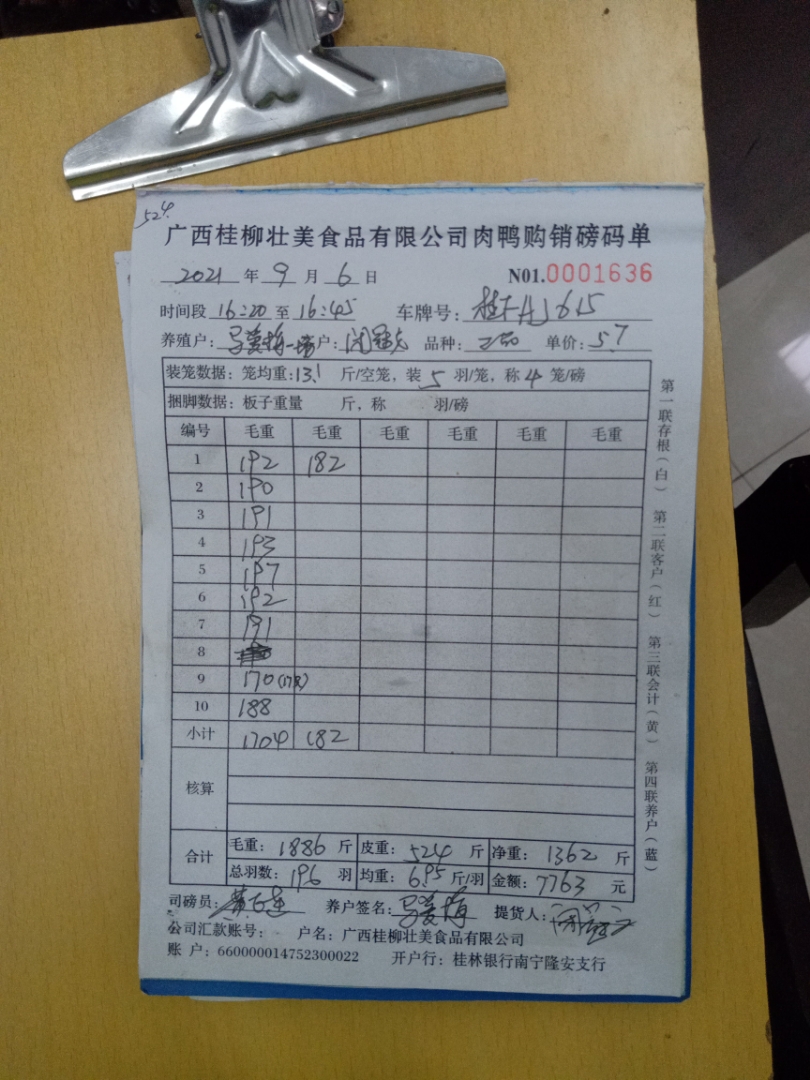 524.
广西桂柳壮美食品有限公司肉鸭购销磅码单
2021 年 9 月 6 日 N01.0001636
时间段 16:20 至 16:45 车牌号: 615
养殖户: 客户: 品种: 单价: 5.7
装笼数据: 笼均重: 13.1 斤/空笼, 装 5 羽/笼, 称 4 笼/磅
捆脚数据: 板子重量 斤, 称 羽/磅
编号 毛重 毛重 毛重 毛重 毛重 毛重
1 192 182
2 190
3 191
4 193
5 197
6 192
7 191
8
9 170(17只)
10 188
小计 1704 182
核算
合计 毛重: 1886 斤 皮重: 524 斤 净重: 1362 斤
总羽数: 196 羽 均重: 6.95 斤/羽 金额: 7763 元
司磅员: 养户签名: 提货人:
公司汇款账号: 户名: 广西桂柳壮美食品有限公司
账 户: 660000014752300022 开户行: 桂林银行南宁隆安支行
第一联存根(白) 第二联客户(红) 第三联会计(黄) 第四联养户(蓝)